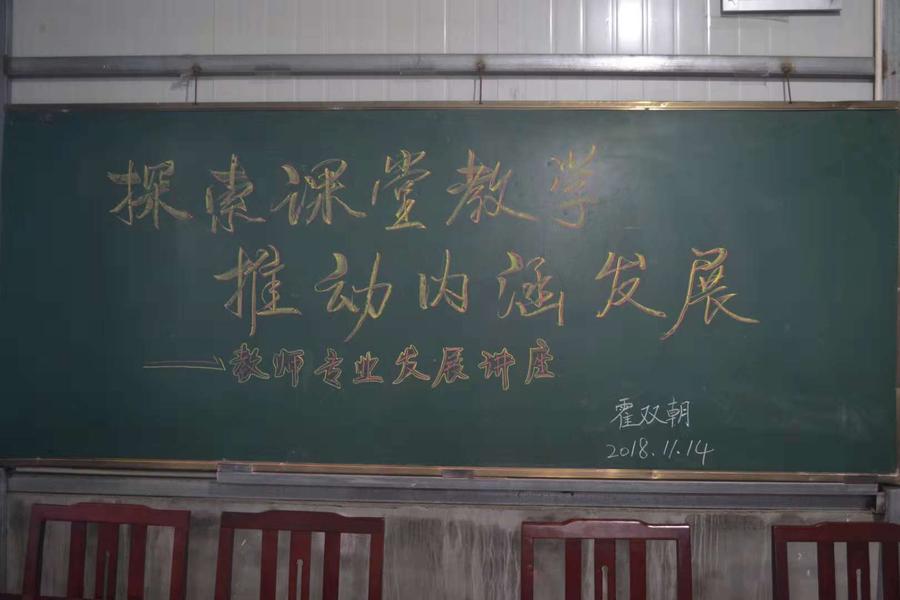 探索课堂教学
推动内涵发展
——→教师专业发展讲座
霍双朝
2018.11.14